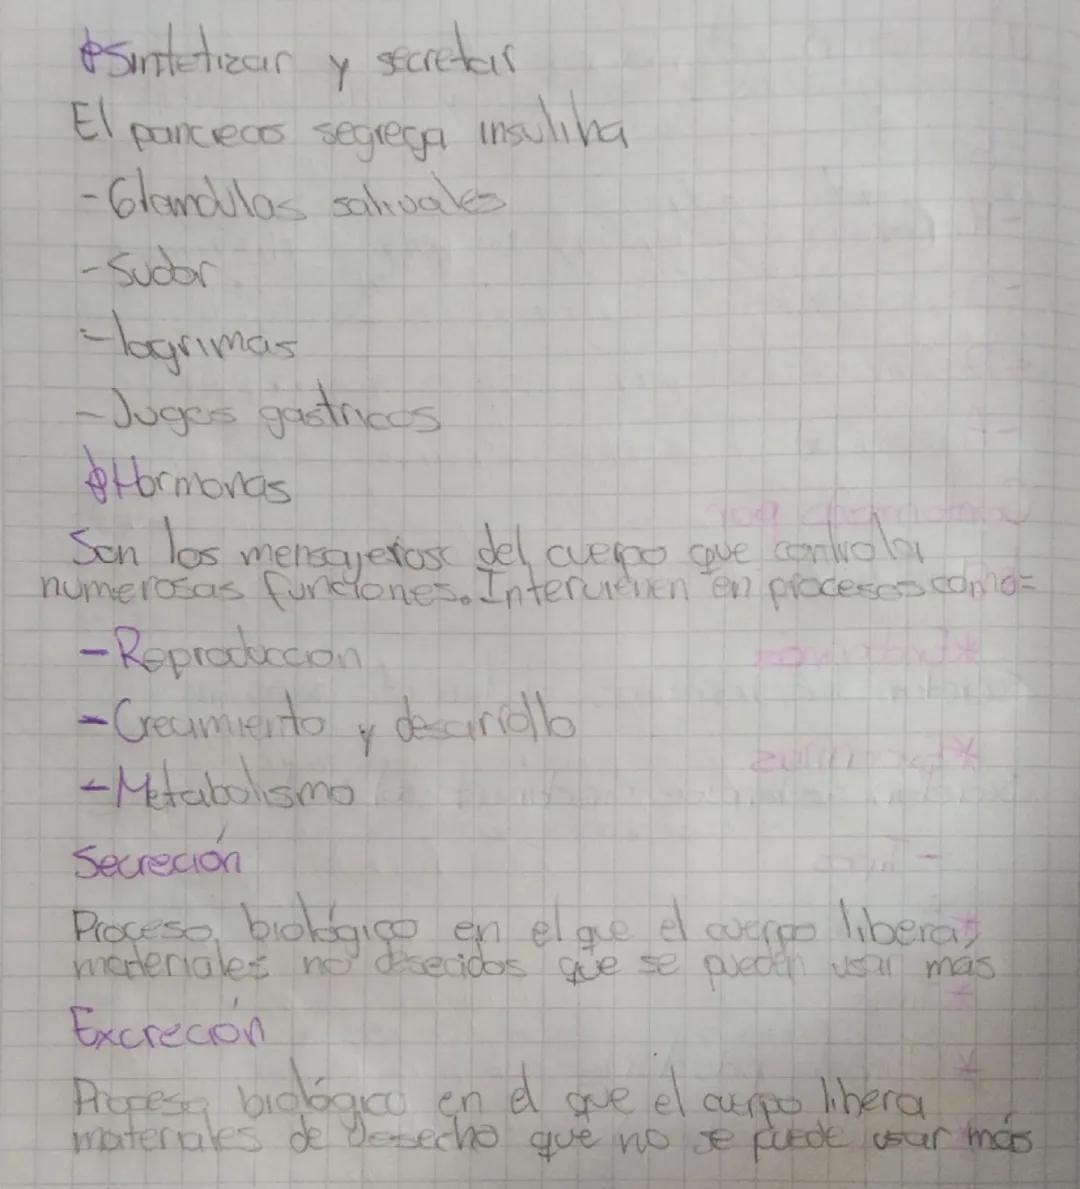 Sintetizar y secretar
El pancreas segrega insulina
- Glandulas salivales
- Sudor
- lagrimas
- Jugos gastricos
Hormonas
Son los mensajeros del cuerpo que controla
numerosas funciones. Intervienen en procesos como=
- Reproduccion
- Crecimiento y desarrollo
- Metabolismo
Secreción
Proceso biológico en el que el cuerpo libera
materiales no desecidos que se pueden usar mas
Excreción
Proceso biológico en el que el cuerpo libera
materiales de desecho que no se puede usar más